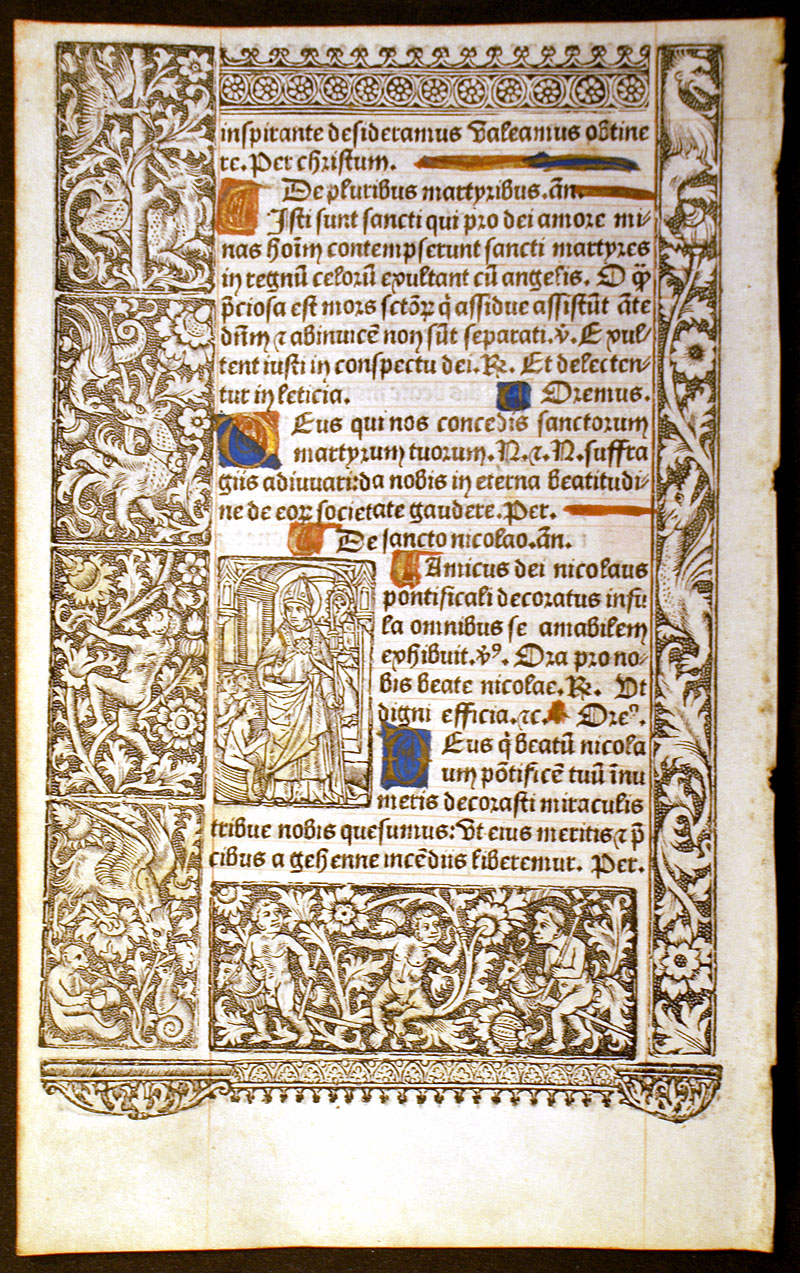 inspirante desideramus valeamus obtine
re. Per christum.
De pluribus martyribus. añ.
Isti sunt sancti qui pro dei amore mi-
nas hoīm contempserunt sancti martyres
in regnū celorū exultant cū angelis. O q̄
p̄ciosa est mors sctōꝝ q̇ assidue assistūt āte
dn̄m ⁊ abinuicē non sūt separati. v̇. Exul-
tent iusti in conspectu dei. ℟. Et delecten-
tur in leticia. Oremus.
Deus qui nos concedis sanctorum
martyrum tuorum. N. ⁊. N. suffra
giis adiuuari: da nobis in eterna beatitudi-
ne de eoꝝ societate gaudere. Per.
De sancto nicolao. añ.
Amicus dei nicolaus
pontificali decoratus infu
la omnibus se amabilem
exhibuit. v̇ꝰ. Ora pro no-
bis beate nicolae. ℟. Vt
digni efficia. ⁊c. Oreꝰ.
Deus q̇ beatū nicola
um pōtificē tuū īnu
meris decorasti miraculis
tribue nobis quesumus: vt eius meritis ⁊ p̄
cibus a gehenne incēdiis liberemur. Per.